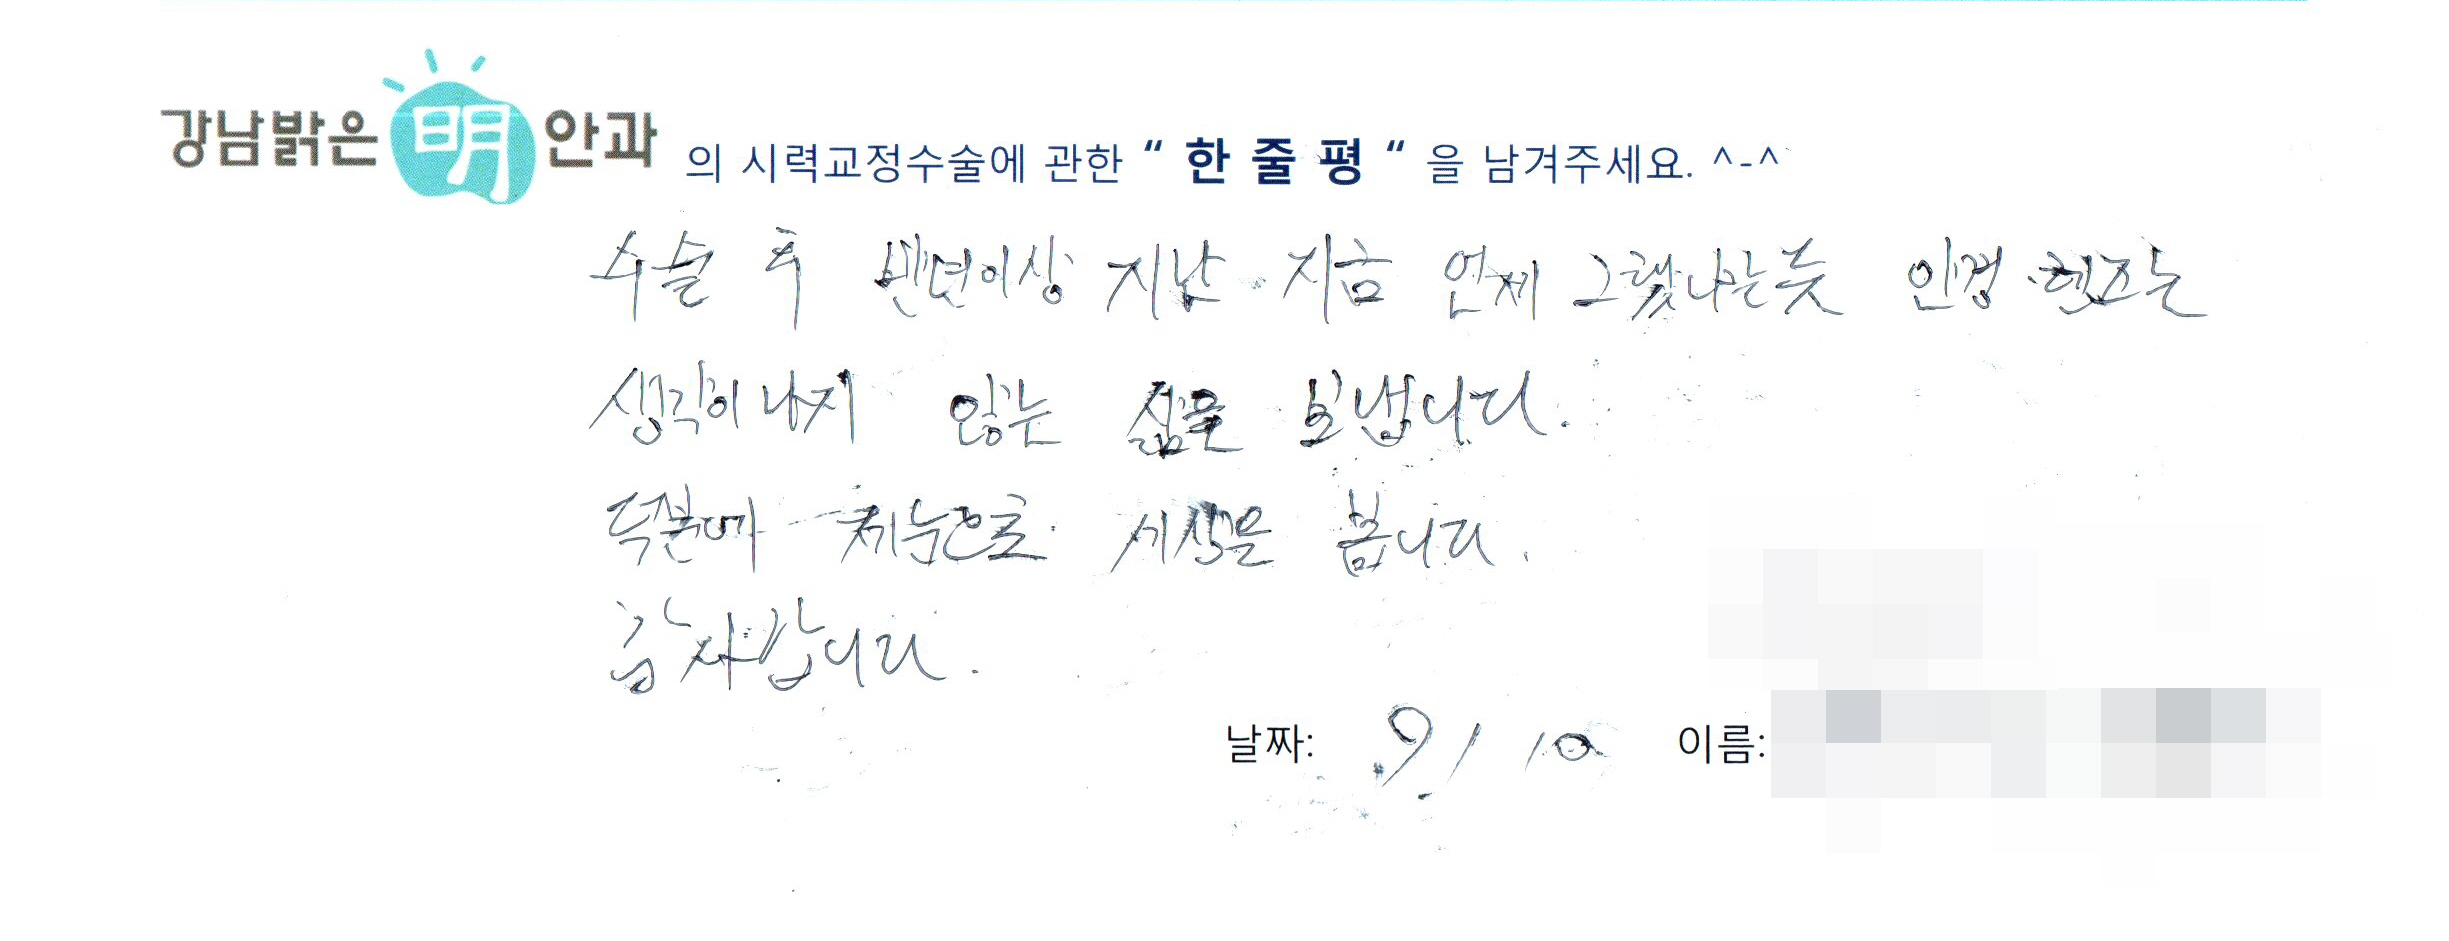 강남밝은 明 안과 의 시력교정수술에 관한 “ 한 줄 평 “ 을 남겨주세요. ^-^
수술 후 반년이상 지난 지금 언제 그랬냐는듯 안경
생각이 나지 않는 삶을 보냅니다.
덕분에 제눈으로 세상을 봅니다.
감사합니다.
날짜: 9/ 10 이름: